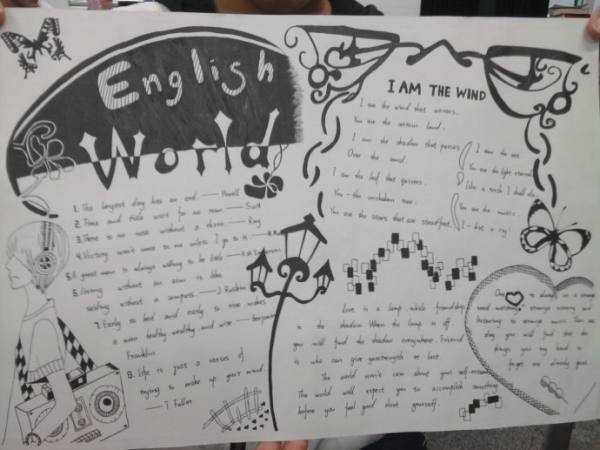 English
World
1. The longest day has an end. —— Howell
2. Time and tide wait for no man. —— Scott
3. There is no rose without a thorn —— Ray
4. Victory won't come to me unless I go to it. ——
5. A great man is always willing to be little.
6. living without an aim is like
sailing without a compass. —— J. Ruskin
7. Early to bed and early to rise makes
a man healthy, wealthy, and wise. —— Benjamin
Franklin
8. Life is just a series of
trying to make up your mind
—— T. Fuller
I AM THE WIND
I am the wind that wavers.
You are the certain land;
I am the shadow that passes
Over the sand.
I am the leaf that quivers.
You - the unshaken tree;
You are the stars that are steadfast,
I am the sea.
You are the light eternal
Like a torch I shall die,
You are the music.
I - but a cry!
Love is a lamp, while friendship
is the shadow. When the lamp is off,
you will find the shadow everywhere. Friend
is who can give you strength at last.
The world won't care about your self-esteem.
The world will expect you to accomplish something
before you feel good about yourself.
One is always on a strange
road, watching strange scenery and
listening to strange music. Then one
day, you will find that the
things you try hard to
forget are already gone.